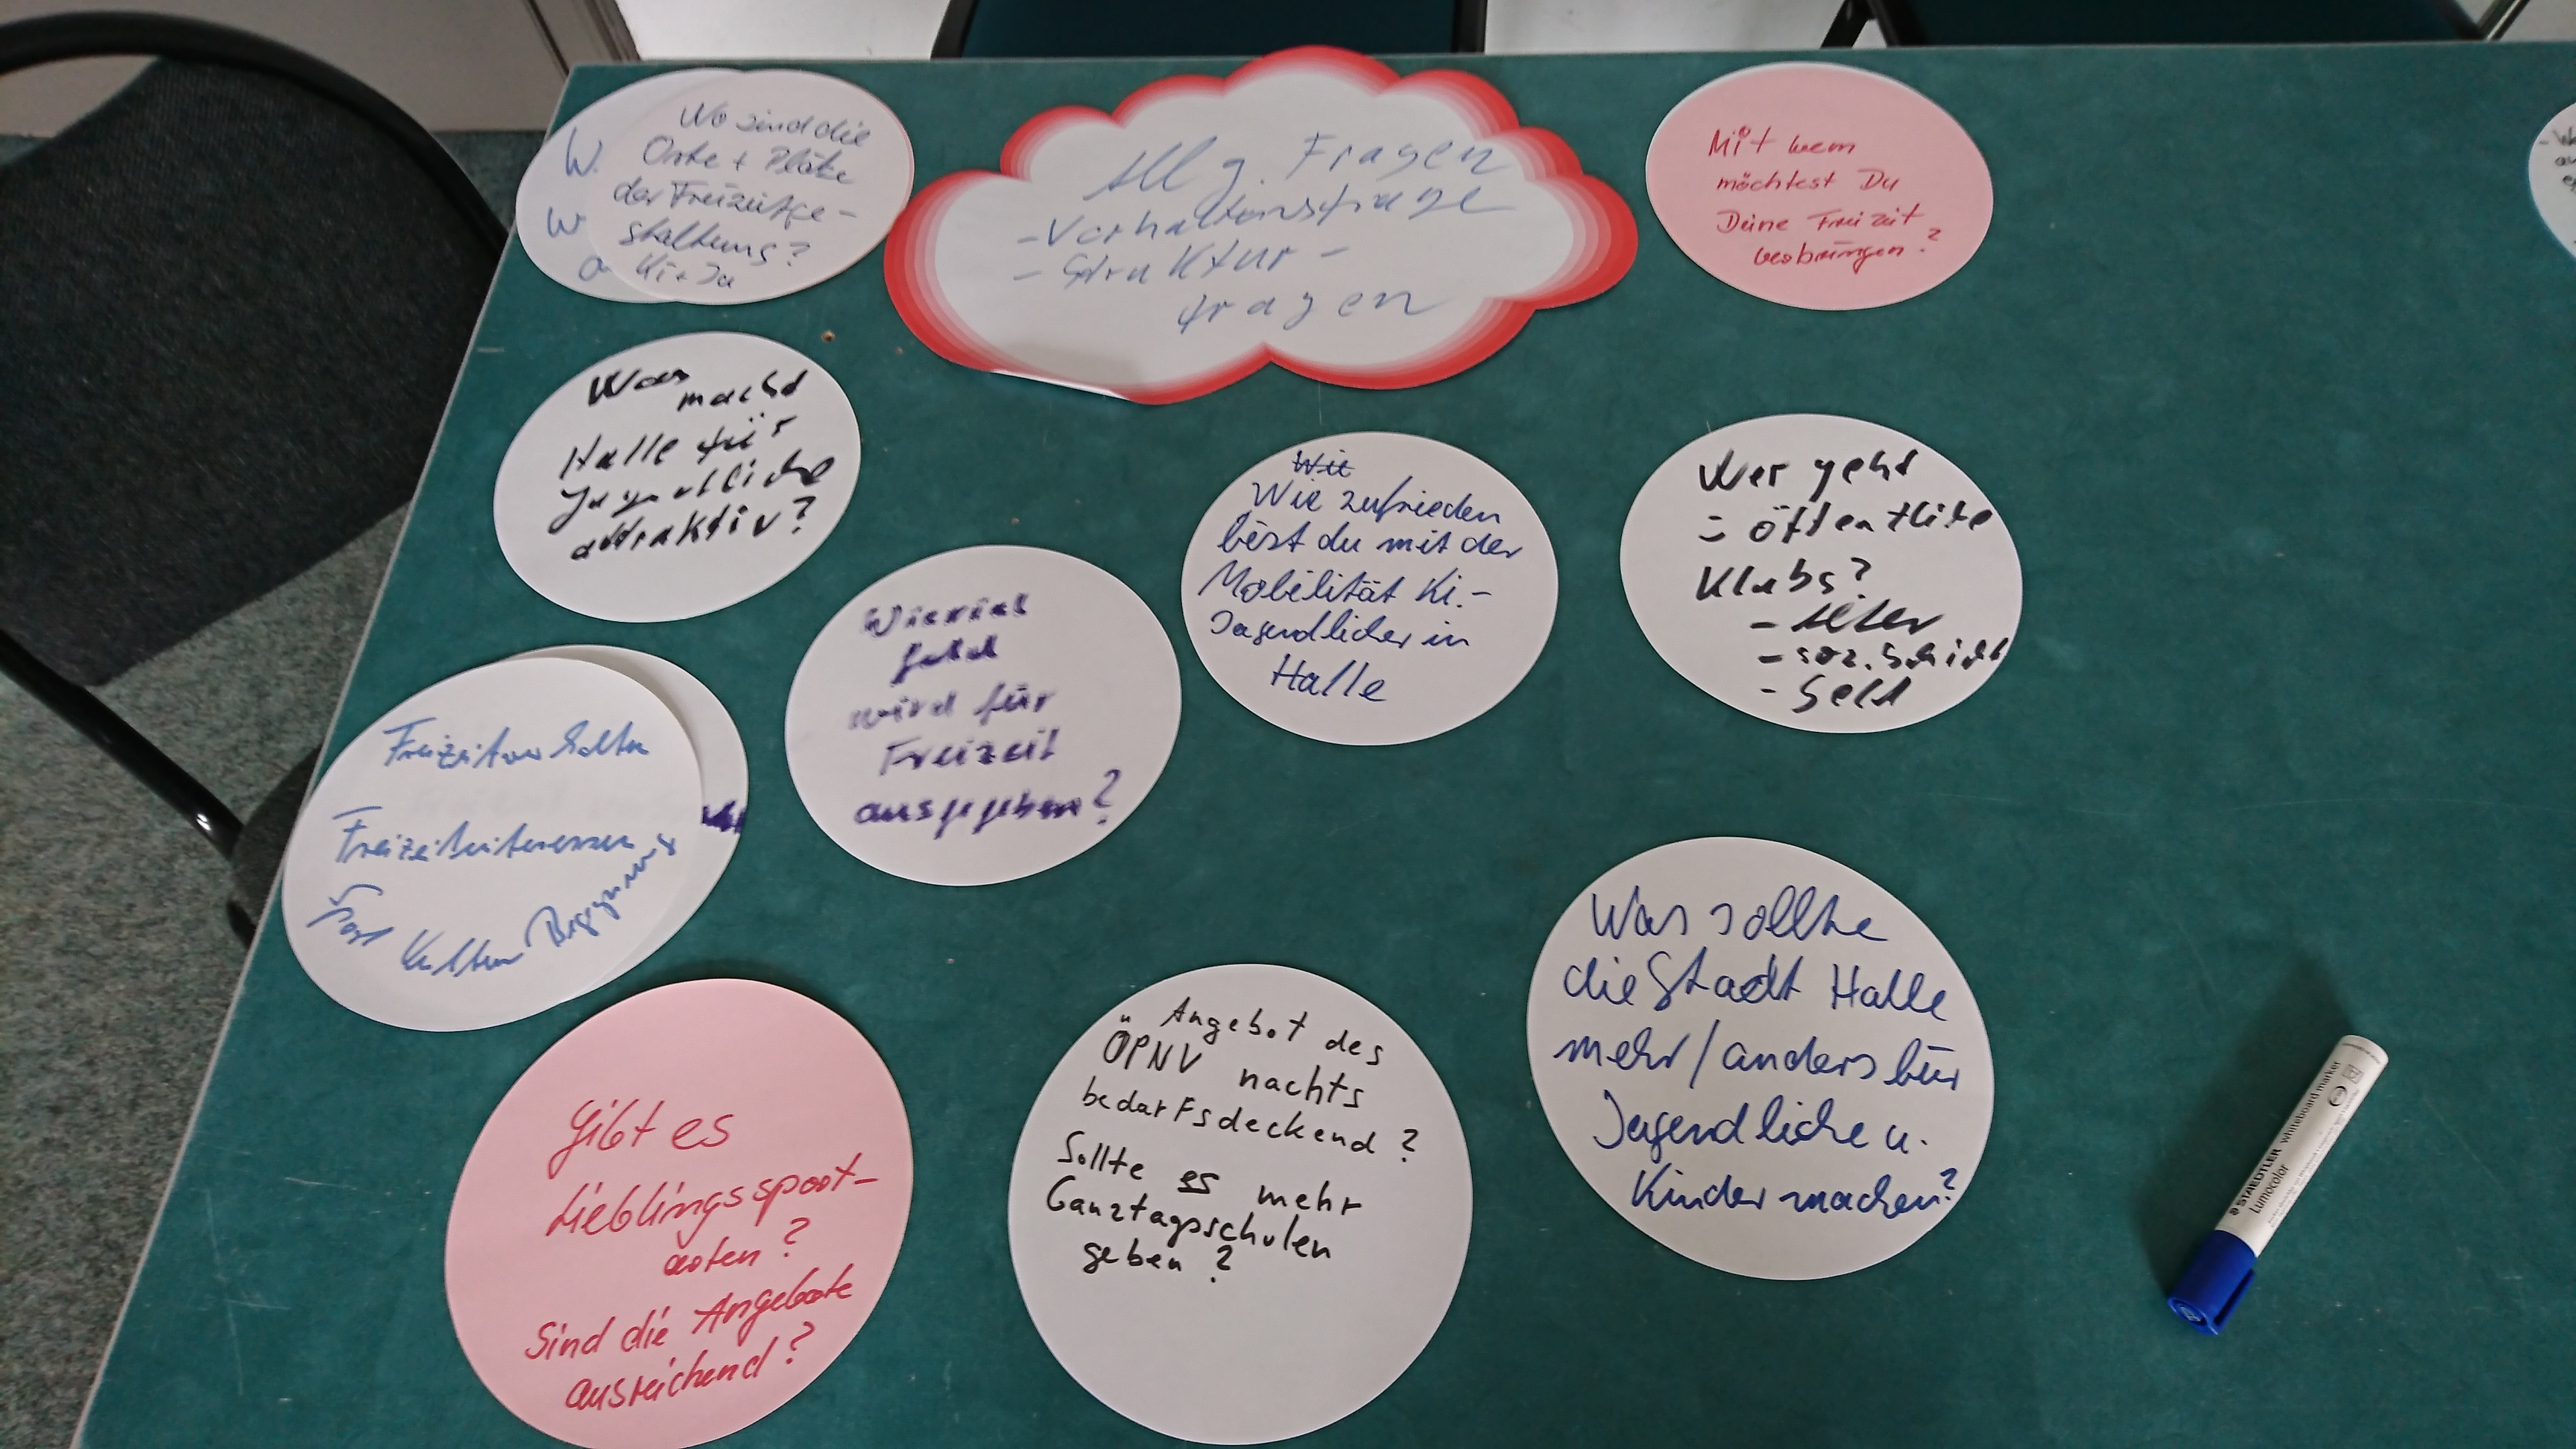 W.
W
a
Wo sind die
Orte + Plätze
der Freizeitge-
staltung?
Ki + Ju
Allg. Fragen
- Verhaltensfrage
- Struktur -
fragen
Mit wem
möchtest Du
Deine Freizeit
verbringen?
Was
macht
Halle für
Jugendliche
attraktiv?
Wie
Wie zufrieden
bist du mit der
Mobilität Ki.-
Jugendlicher in
Halle
Wer geht
in öffentliche
Klubs?
- Alter
- soz. Schicht
- Geld
Wieviel
Geld
wird für
Freizeit
ausgegeben?
Freizeitverhalten
Freizeitinteressen
Sport Kultur Begegnung
Gibt es
Lieblingssport-
arten?
Sind die Angebote
ausreichend?
Angebot des
ÖPNV nachts
bedarfsdeckend?
Sollte es mehr
Ganztagsschulen
geben?
Was sollte
die Stadt Halle
mehr/anders für
Jugendliche u.
Kinder machen?
STAEDTLER whiteboard marker
Lumocolor